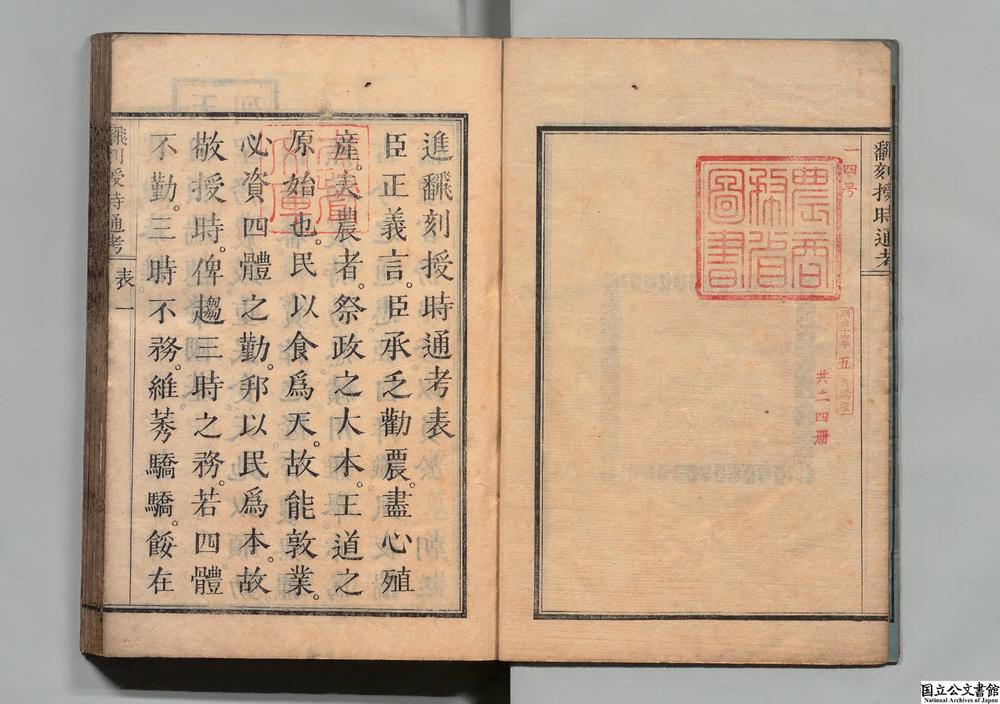 飜刻授時通考
一四号
農商務省圖書
五
共二四册
進飜刻授時通考表
臣正義言。臣承乏勸農。盡心殖
產。夫農者。祭政之大本。王道之
原始也。民以食爲天。故能敦業。
必資四體之勤。邦以民爲本。故
敬授時。俾趨三時之務。若四體
不勤。三時不務。維莠驕驕。餒在
飜刻授時通考
表
一
国立公文書館
National Archives of Japan